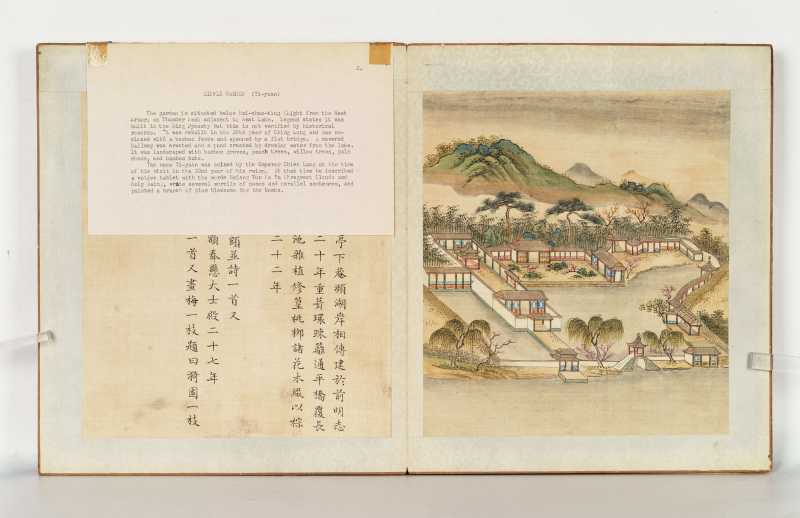 2.
GARDEN (Yi-yuan)
The garden is situated below Hui-chao-ting (Light from the West
arbor) on Thunder Peak adjacent to West Lake. Legend states it was
built in the Ming Dynasty but this is not verified by historical
records. It was rebuilt in the 20th year of Ching Lung and was en-
closed with a bamboo fence and spanned by a flat bridge. A covered
hallway was erected and a pond created by drawing water from the lake.
It was landscaped with bamboo groves, peach trees, willow trees, palm
sheds, and bamboo huts.
The name Yi-yuan was coined by the Emperor Chien Lung at the time
of his visit in the 22nd year of his reign. At that time he inscribed
a votive tablet with the words Hsiang Yun Fa Yu (Fragrant Clouds and
Holy Rain), wrote several scrolls of poems and parallel sentences, and
painted a branch of plum blossoms for the tombs.
亭下菴瀕湖岸相傳建於前明志
二十年重葺環踈籬通平橋覆長
池雜植修篁桃柳諸花木以棕
二十二年
額並詩一首又
額懸大士殿二十七年
一首又畫梅一枝題曰漪園一枝